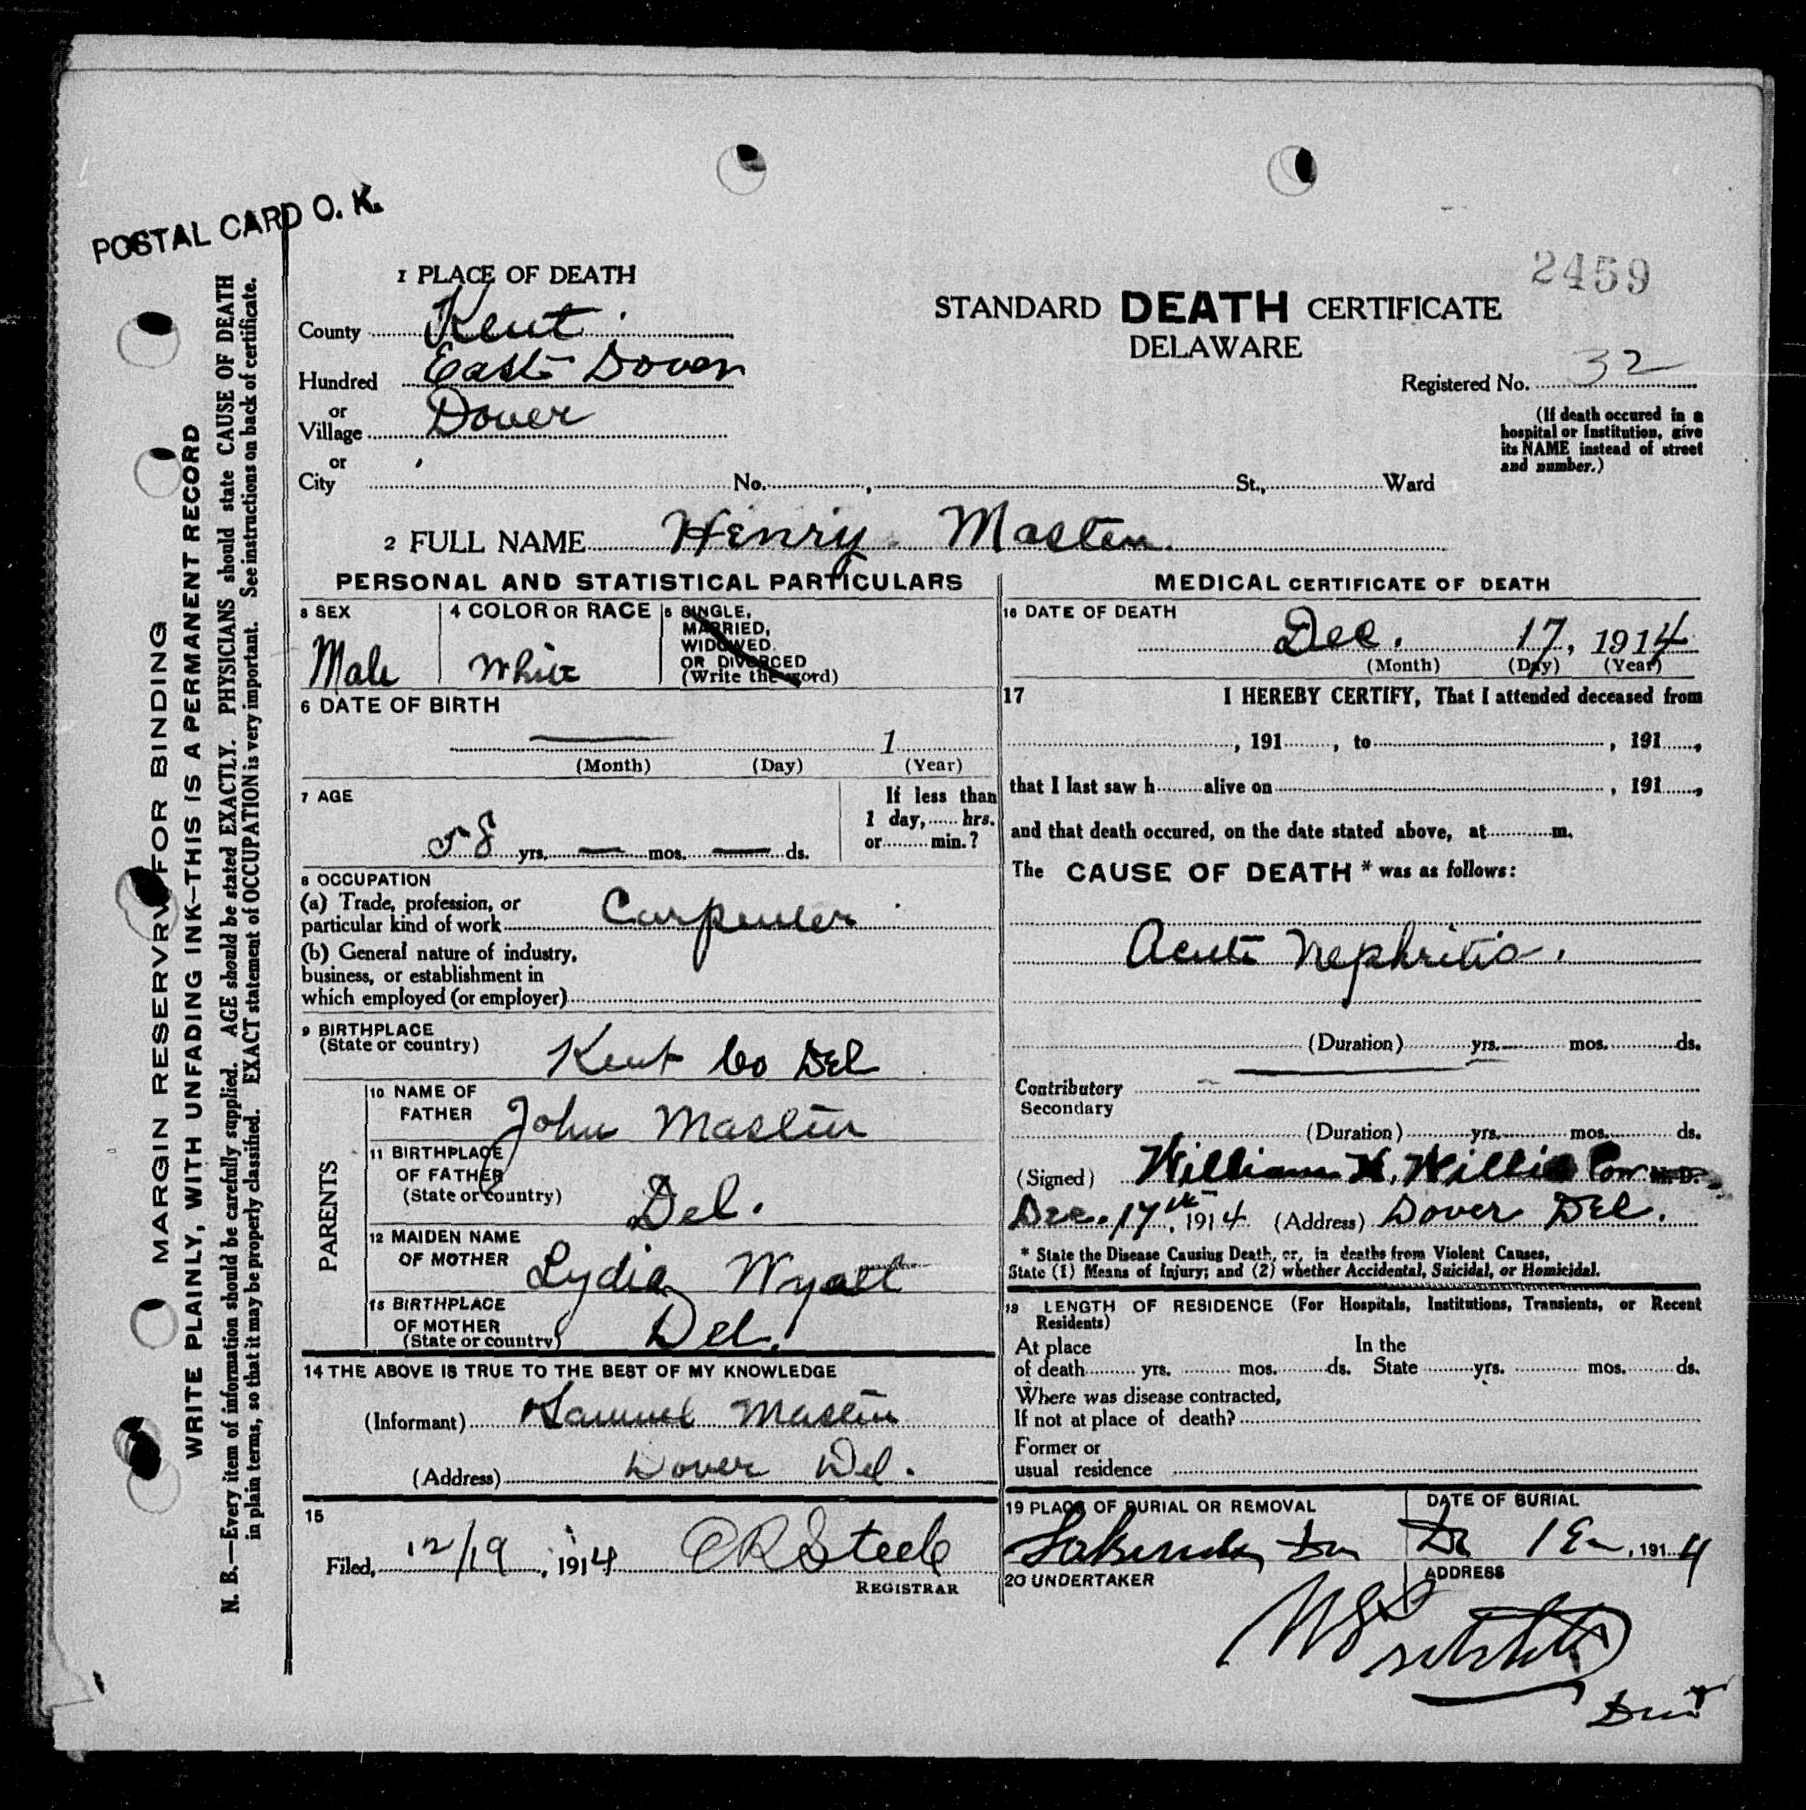 POSTAL CARD O. K.
MARGIN RESERVRV FOR BINDING
WRITE PLAINLY, WITH UNFADING INK—THIS IS A PERMANENT RECORD
N. B.—Every item of information should be carefully supplied. AGE should be stated EXACTLY. PHYSICIANS should state CAUSE OF DEATH
in plain terms, so that it may be properly classified. EXACT statement of OCCUPATION is very important. See instructions on back of certificate.
2459
1 PLACE OF DEATH
STANDARD DEATH CERTIFICATE
DELAWARE
County Kent
Hundred East Dover
or
Village Dover
or
City No. , St., Ward
Registered No. 32
(If death occured in a
hospital or Institution, give
its NAME instead of street
and number.)
2 FULL NAME Henry Masten
PERSONAL AND STATISTICAL PARTICULARS
3 SEX
Male
4 COLOR OR RACE
White
5 SINGLE,
MARRIED,
WIDOWED
OR DIVORCED
(Write the word)
6 DATE OF BIRTH
1
(Month) (Day) (Year)
7 AGE
58 yrs. — mos. — ds.
If less than
1 day, hrs.
or min.?
8 OCCUPATION
(a) Trade, profession, or
particular kind of work Carpenter
(b) General nature of industry,
business, or establishment in
which employed (or employer)
9 BIRTHPLACE
(State or country) Kent Co Del
PARENTS
10 NAME OF
FATHER John Masten
11 BIRTHPLACE
OF FATHER
(State or country) Del.
12 MAIDEN NAME
OF MOTHER Lydia Wyatt
13 BIRTHPLACE
OF MOTHER
(State or country) Del.
14 THE ABOVE IS TRUE TO THE BEST OF MY KNOWLEDGE
(Informant) Samuel Masten
(Address) Dover Del.
15
Filed, 12/19, 1914 CR Steele
REGISTRAR
MEDICAL CERTIFICATE OF DEATH
16 DATE OF DEATH
Dec. 17, 1914
(Month) (Day) (Year)
17 I HEREBY CERTIFY, That I attended deceased from
, 191 , to , 191 ,
that I last saw h alive on , 191 ,
and that death occured, on the date stated above, at m.
The CAUSE OF DEATH * was as follows:
Acute Nephritis.
(Duration) yrs. mos. ds.
Contributory
Secondary
(Duration) yrs. mos. ds.
(Signed) William H. Willis Cor M.D.
Dec. 17th, 1914 (Address) Dover Del.
* State the Disease Causing Death, or, in deaths from Violent Causes,
State (1) Means of Injury; and (2) whether Accidental, Suicidal, or Homicidal.
18 LENGTH OF RESIDENCE (For Hospitals, Institutions, Transients, or Recent
Residents)
At place In the
of death yrs. mos. ds. State yrs. mos. ds.
Where was disease contracted,
If not at place of death?
Former or
usual residence
19 PLACE OF BURIAL OR REMOVAL
DATE OF BURIAL
, 1914
20 UNDERTAKER
ADDRESS